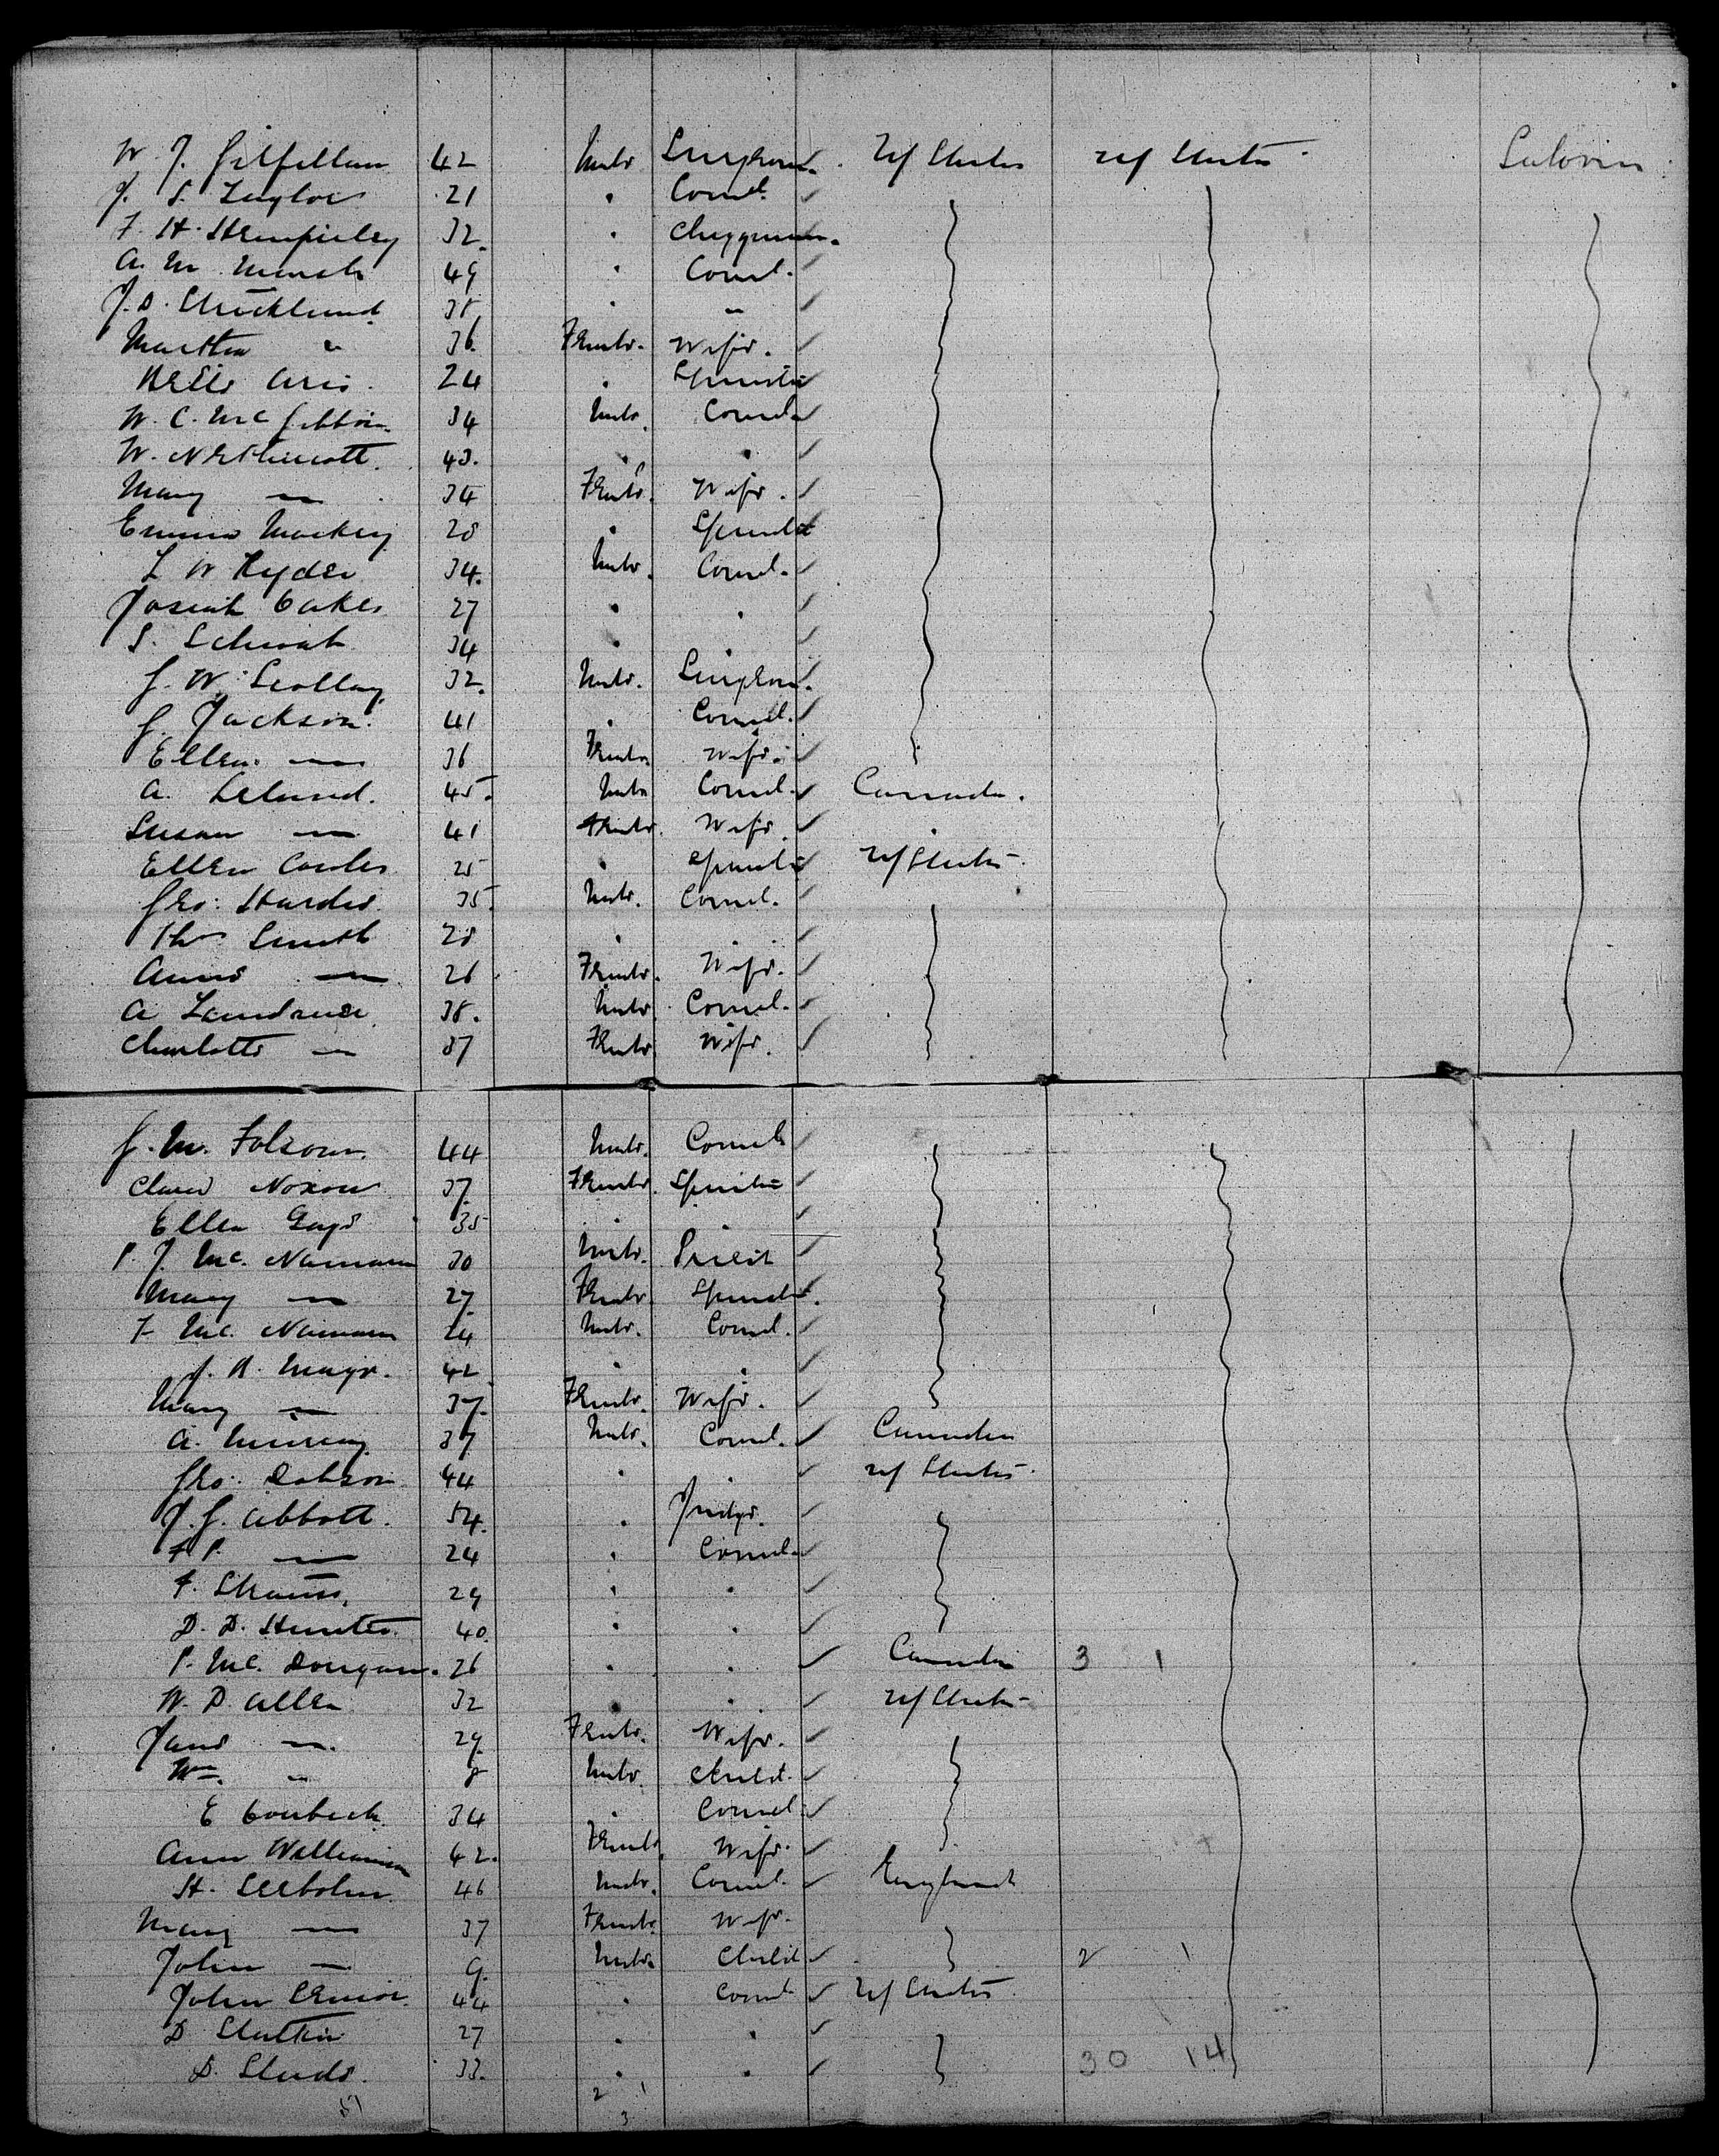 W. J. Gilfillan 42 Male Surgeon U/States U/States Saloon
J. S. Taylor 21 " Coml.
F. H. Humphrley 32. " Clergyman.
A. M. Marsh 49 " Coml.
J. D. Strickland 35 " "
Martha " 36 Female. Wife.
Belle Aris. 24 " Spinster
W. C. McGibbon. 34 Male. Coml.
W. Nethercott. 43. " "
Mary — 34 Female. Wife.
Emma Mackey 28 " Spinster
L W Ryder 34. Male. Coml.
Josiah Oakes 27 " "
S. Schwab 34 " "
G. W. Scollay 32. Male. Surgeon.
G. Jackson. 41 " Coml.
Ellen. — 36 Female Wife.
A. Leland. 45. Male Coml. Canada.
Susan — 41 Female. Wife. "
Ellen Cowles 25 " Spinster U/States
Geo: Hardie 35. Male. Coml.
Thos Smith 28 " "
Annie — 26 Female. Wife.
A 38. Male. Coml.
Charlotte — 37 Female Wife.
G. M. Folsom. 44 Male. Coml
Clara Noxon 37. Female. Spinster
Ellen Gays 35 "
P. J. McNamara 30 Male. Priest
Mary — 27. Female Spinster.
F McNamara 24 Male. Coml.
J. H. Mays. 42 " "
Mary — 37. Female. Wife.
A. Murray 37 Male. Coml. Canada
Geo: Dobson 44 " U/States
J. G. Abbott. 54. " Judge.
F P. — 24 " Coml.
F. Strauss. 29 " "
D. D. Hunter. 40. " "
P. McDougan. 26 " " Canada 3 1
W. D. Allen 32 " " U/States
Jane — 29. Female. Wife.
Wm. " 8 Male. Child.
E 34 " Coml.
Ann Williamson 42. Female. Wife.
H. Seebohm. 46 Male. Coml. England
Mary — 37 Female Wife.
John — 9. Male. Child 2 1
John 44 " Coml U/States
D. 27 " "
D. 33. " " 30 14
51 2 1
3